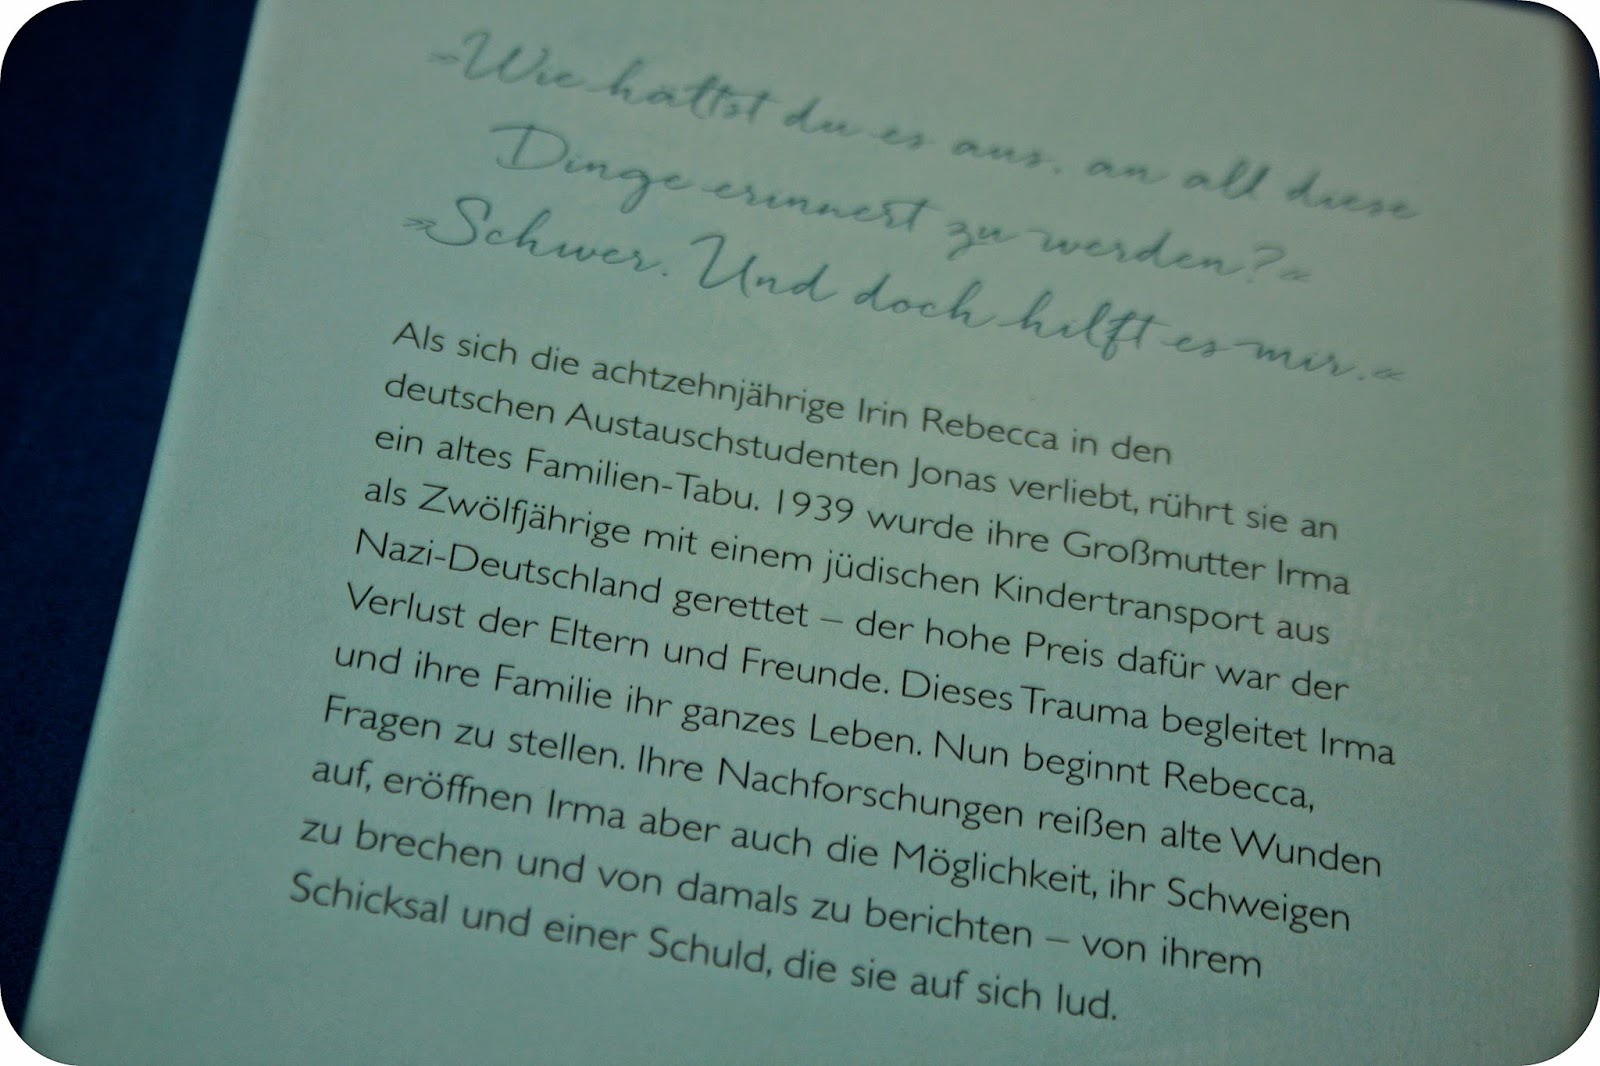 »Wie hältst du es aus, an all diese
Dinge erinnert zu werden?«
»Schwer. Und doch hilft es mir.«
Als sich die achtzehnjährige Irin Rebecca in den
deutschen Austauschstudenten Jonas verliebt, rührt sie an
ein altes Familien-Tabu. 1939 wurde ihre Großmutter Irma
als Zwölfjährige mit einem jüdischen Kindertransport aus
Nazi-Deutschland gerettet – der hohe Preis dafür war der
Verlust der Eltern und Freunde. Dieses Trauma begleitet Irma
und ihre Familie ihr ganzes Leben. Nun beginnt Rebecca,
Fragen zu stellen. Ihre Nachforschungen reißen alte Wunden
auf, eröffnen Irma aber auch die Möglichkeit, ihr Schweigen
zu brechen und von damals zu berichten – von ihrem
Schicksal und einer Schuld, die sie auf sich lud.